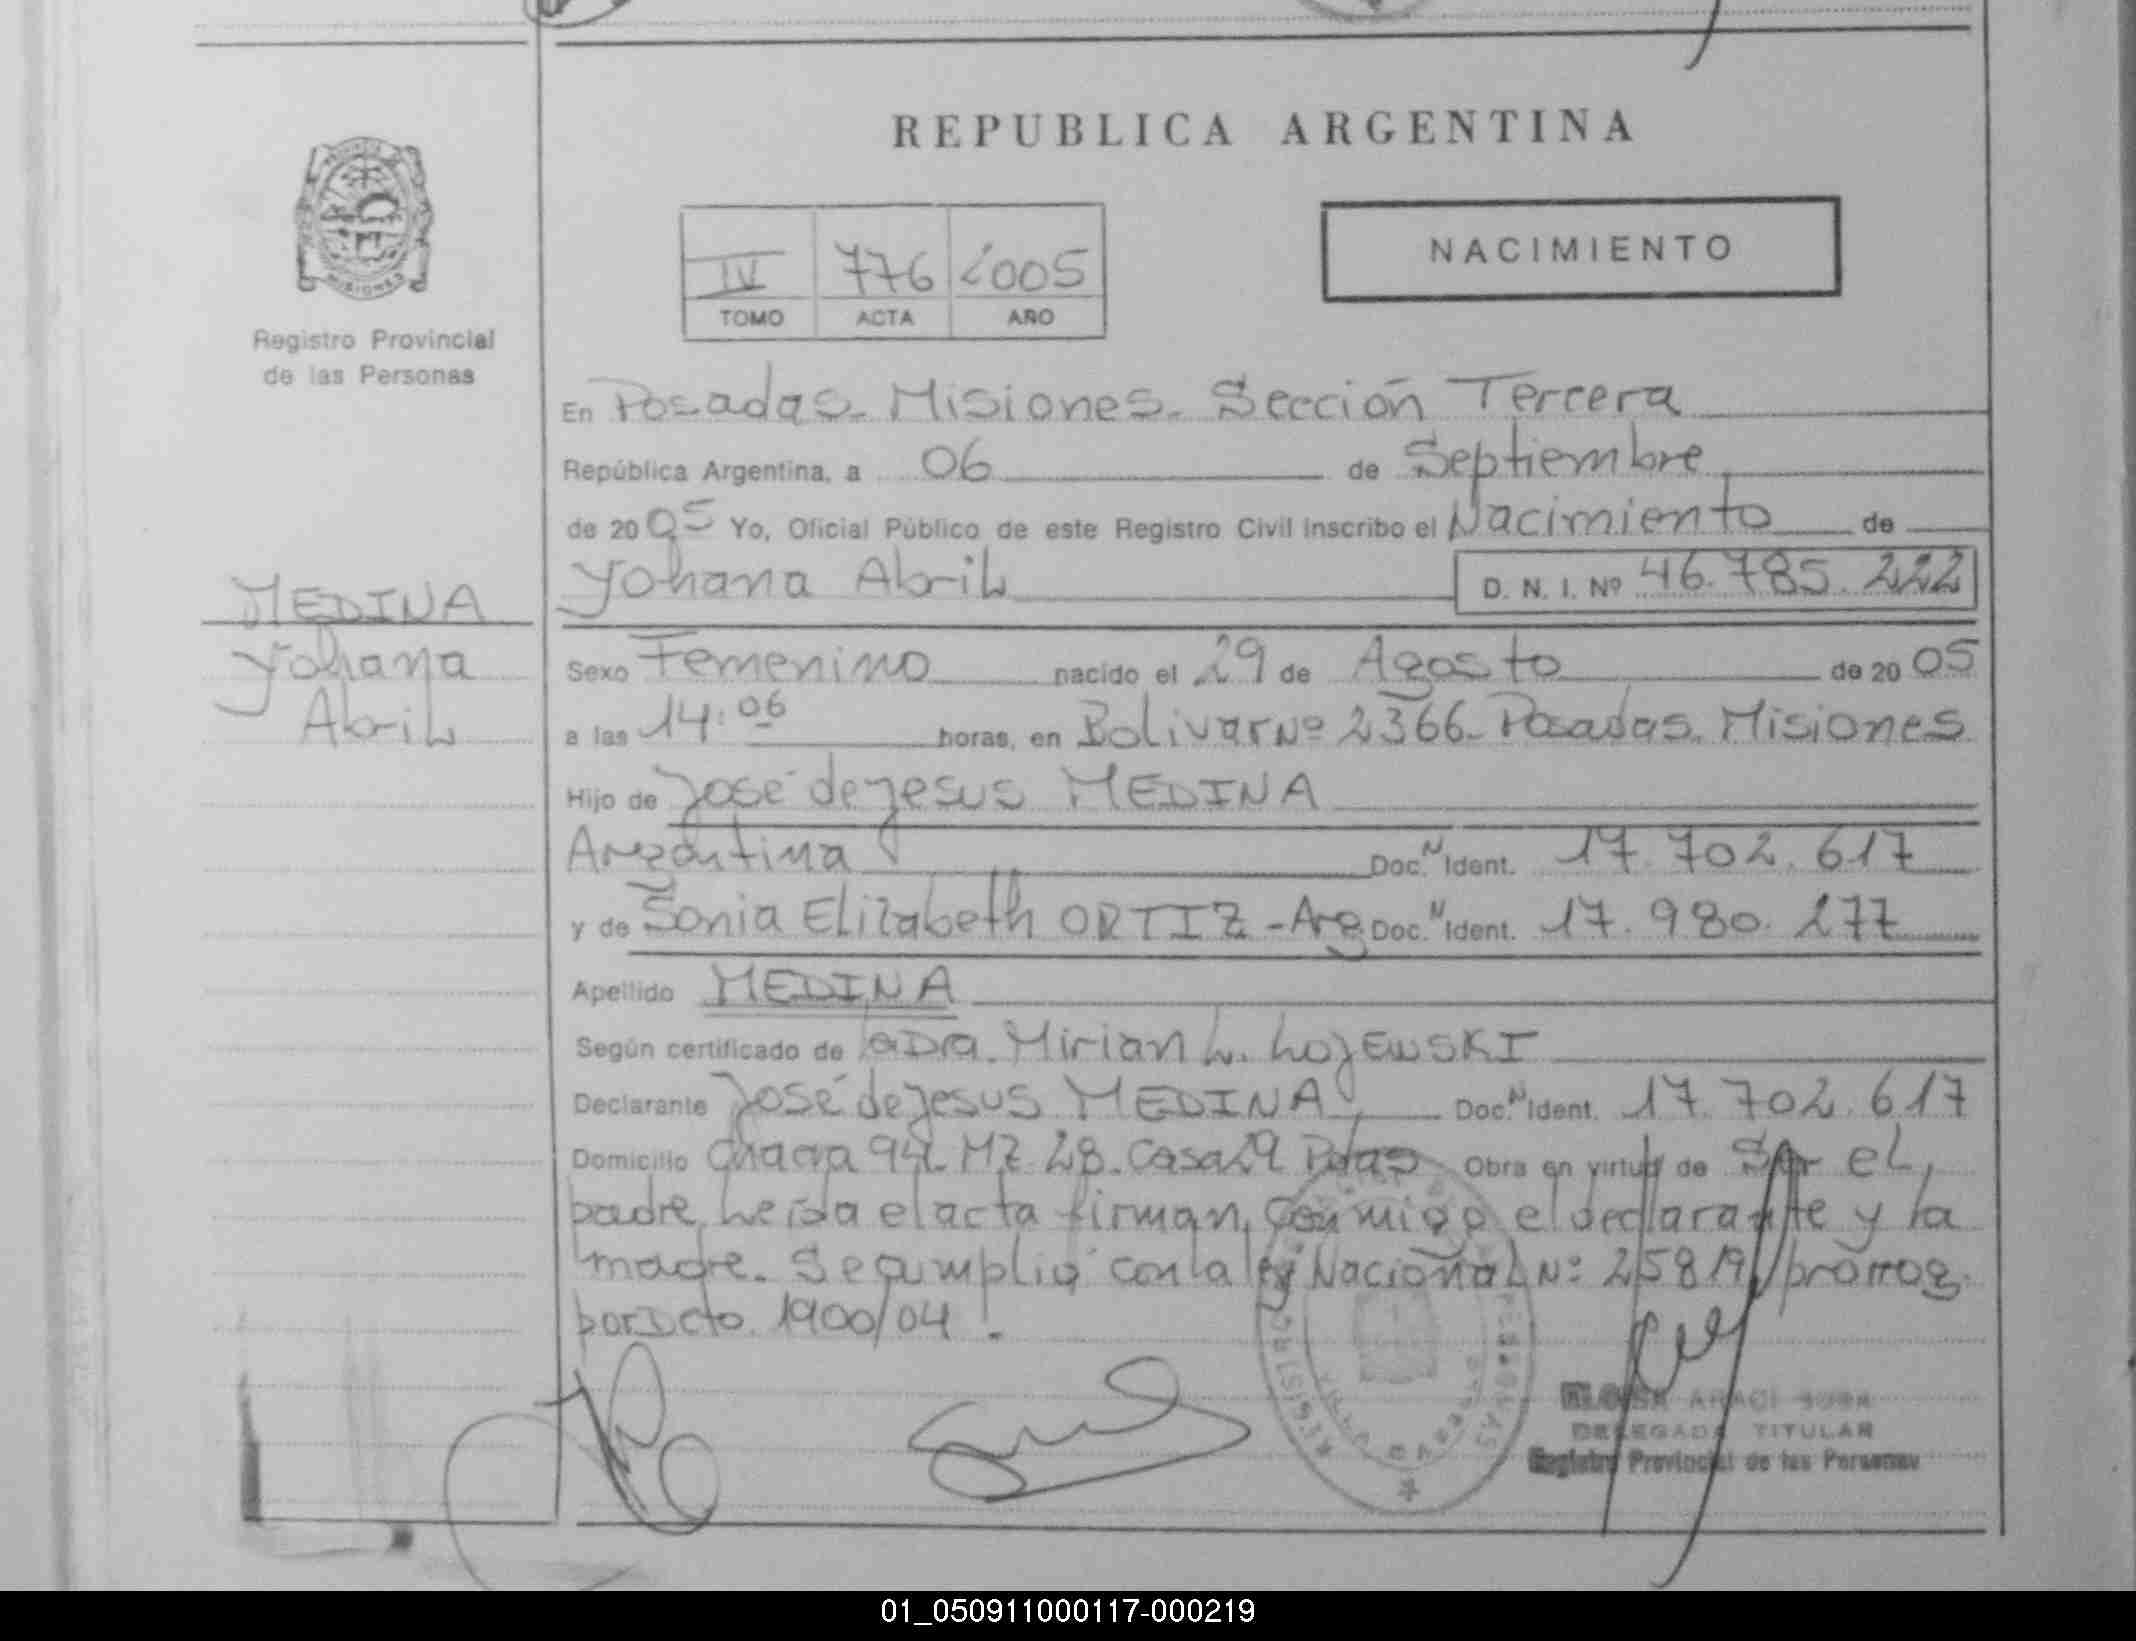 REPUBLICA ARGENTINA
NACIMIENTO
IV 776 2005
TOMO ACTA AÑO
Registro Provincial
de las Personas
En Posadas. Misiones. Sección Tercera
República Argentina, a 06 de Septiembre
de 2005 Yo, Oficial Público de este Registro Civil Inscribo el Nacimiento de
Yohana Abril D. N. I. Nº 46.785.222
MEDINA
Yohana
Abril
Sexo Femenino nacido el 29 de Agosto de 2005
a las 14:06 horas, en Bolivar Nº 2366. Posadas. Misiones
Hijo de José de Jesus MEDINA
Argentina Doc. N Ident. 17.702.617
y de Sonia Elizabeth ORTIZ - Arg Doc. N Ident. 17.980.277
Apellido MEDINA
Según certificado de la Dra. Mirian L. LOJEWSKI
Declarante José de Jesus MEDINA Doc. N Ident. 17.702.617
Domicilio Chacra 94. MZ 28. Casa 29 Pdas Obra en virtud de Ser el
padre. Leida el acta firman, conmigo el declarante y la
madre. Se cumplió con la ley Nacional Nº 25819/prorrog.
por Dcto. 1900/04.
ARACI
DELEGADA TITULAR
Registro Provincial de las Personas
01_050911000117-000219